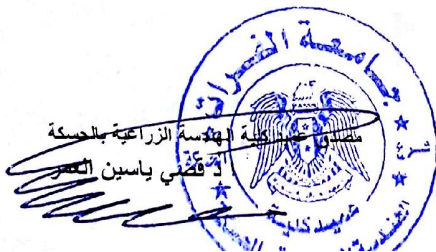 جامعة الفرات
مصدق عميد كلية الهندسة الزراعية بالحسكة
د قصي ياسين العمر
عميد كلية